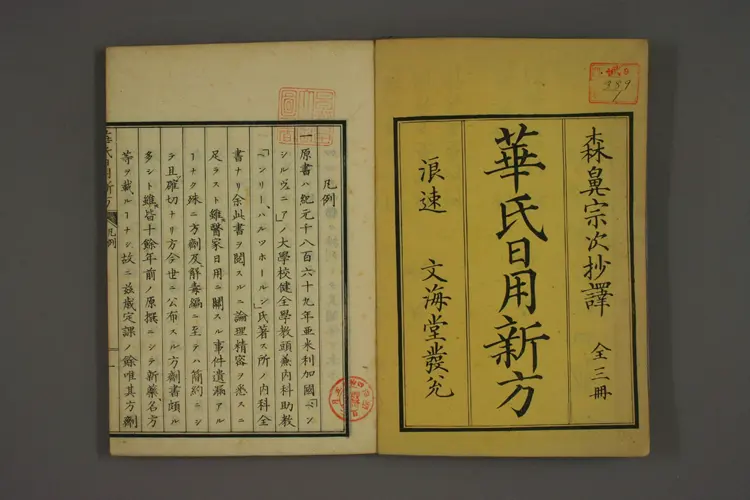 森鼻宗次抄譯 全三冊
華氏日用新方
浪速 文海堂發兌
389
凡例
一 原書ハ紀元千八百六十九年亜米利加國「ペン
シルヴニア」ノ大學校健全學教頭兼内科助教
「ヘンリー、ハルツホールン」氏著ス所ノ内科全
書ナリ余此書ヲ閲スルニ論理精容ヲ悉スニ
足ラスト雖醫家日用ニ關スル事件遺漏アル
ーナク殊ニ方劑及解毒編ニ至テハ簡約ニシ
テ且確切ナリ方今世ニ公布スル方劑書頗ル
多シト雖皆十餘年前ノ原撰ニシテ新藥名方
等ヲ載ルーナシ故ニ玆歳定課ノ餘唯其方劑
華氏日用新方 凡例